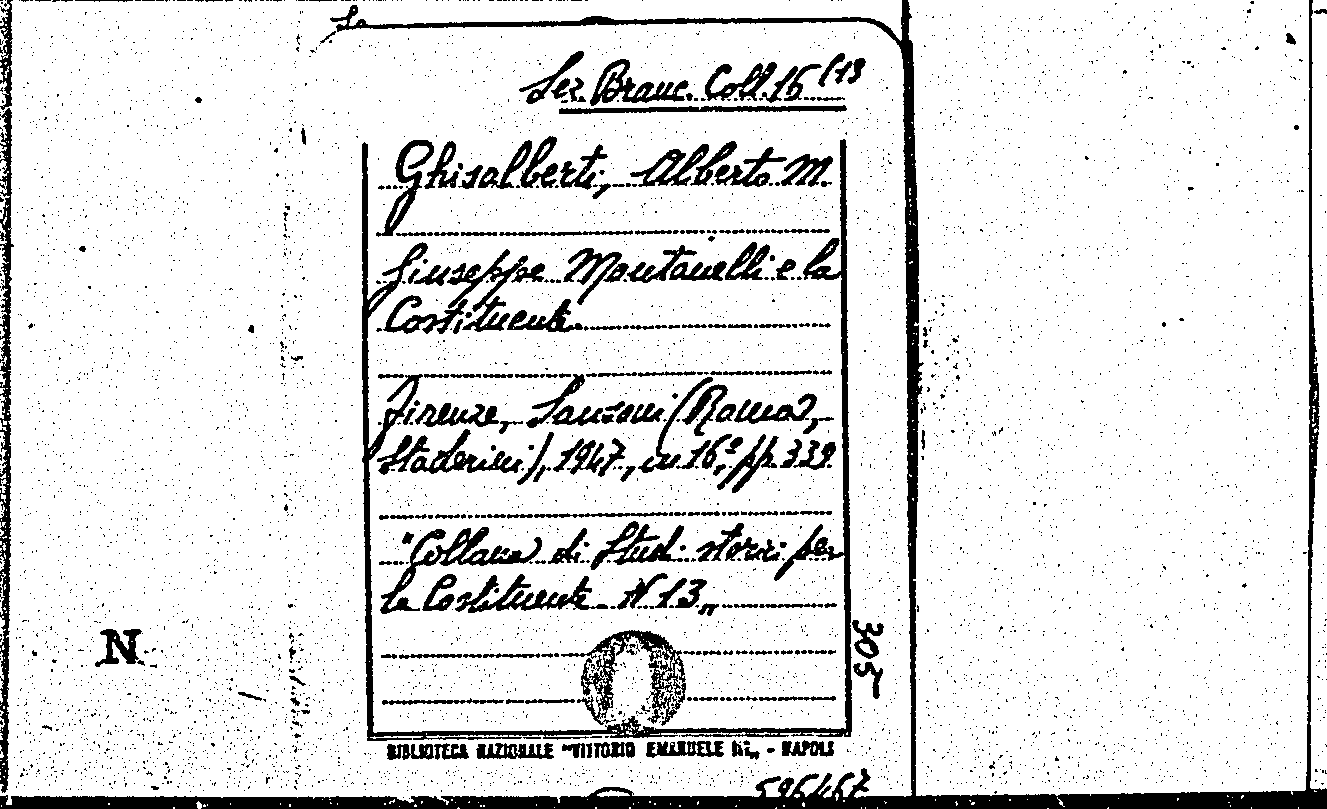 Sez. Branc. Coll. 16 (13
Ghisalberti, Alberto M.
Giuseppe Montanelli e la
Costituente.
Firenze, Sansoni (Roma,
Staderini), 1947, in 16º, pp. 339
"Collana di Studi storici per
la Costituente. N 13„
305
N
BIBLIOTECA NAZIONALE "VITTORIO EMANUELE III„ - NAPOLI
596467